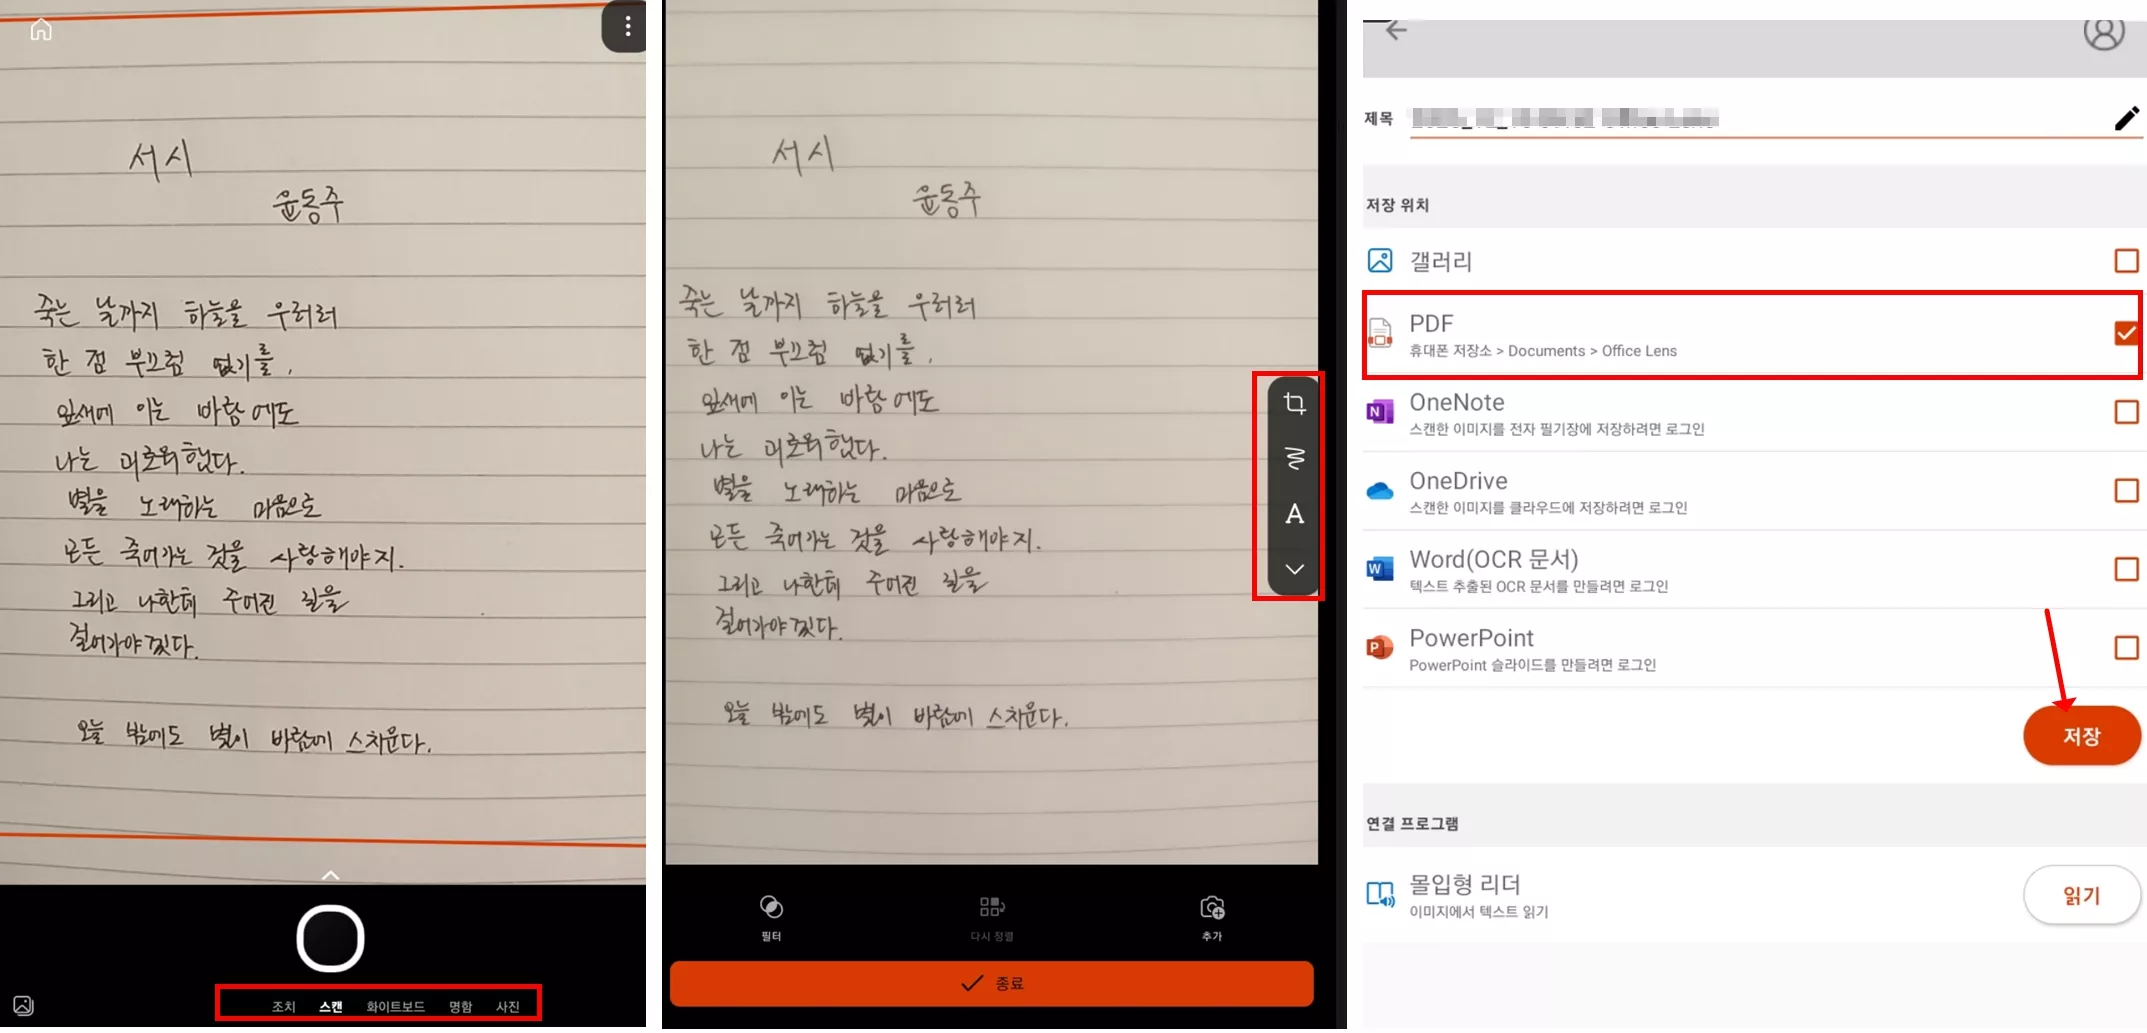 서시
윤동주
죽는 날까지 하늘을 우러러
한 점 부끄럼 없기를,
잎새에 이는 바람에도
나는 괴로워했다.
별을 노래하는 마음으로
모든 죽어가는 것을 사랑해야지.
그리고 나한테 주어진 길을
걸어가야겠다.
오늘 밤에도 별이 바람에 스치운다.
조치 스캔 화이트보드 명함 사진
서시
윤동주
죽는 날까지 하늘을 우러러
한 점 부끄럼 없기를,
잎새에 이는 바람에도
나는 괴로워했다.
별을 노래하는 마음으로
모든 죽어가는 것을 사랑해야지.
그리고 나한테 주어진 길을
걸어가야겠다.
오늘 밤에도 별이 바람에 스치운다.
A
필터 다시 정렬 추가
종료
제목
저장 위치
갤러리
PDF
휴대폰 저장소 > Documents > Office Lens
N
OneNote
스캔한 이미지를 전자 필기장에 저장하려면 로그인
OneDrive
스캔한 이미지를 클라우드에 저장하려면 로그인
W
Word(OCR 문서)
텍스트 추출된 OCR 문서를 만들려면 로그인
P
PowerPoint
PowerPoint 슬라이드를 만들려면 로그인
저장
연결 프로그램
몰입형 리더
이미지에서 텍스트 읽기
읽기